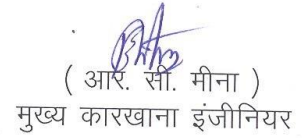 ( आर. सी. मीना )
मुख्य कारखाना इंजीनियर